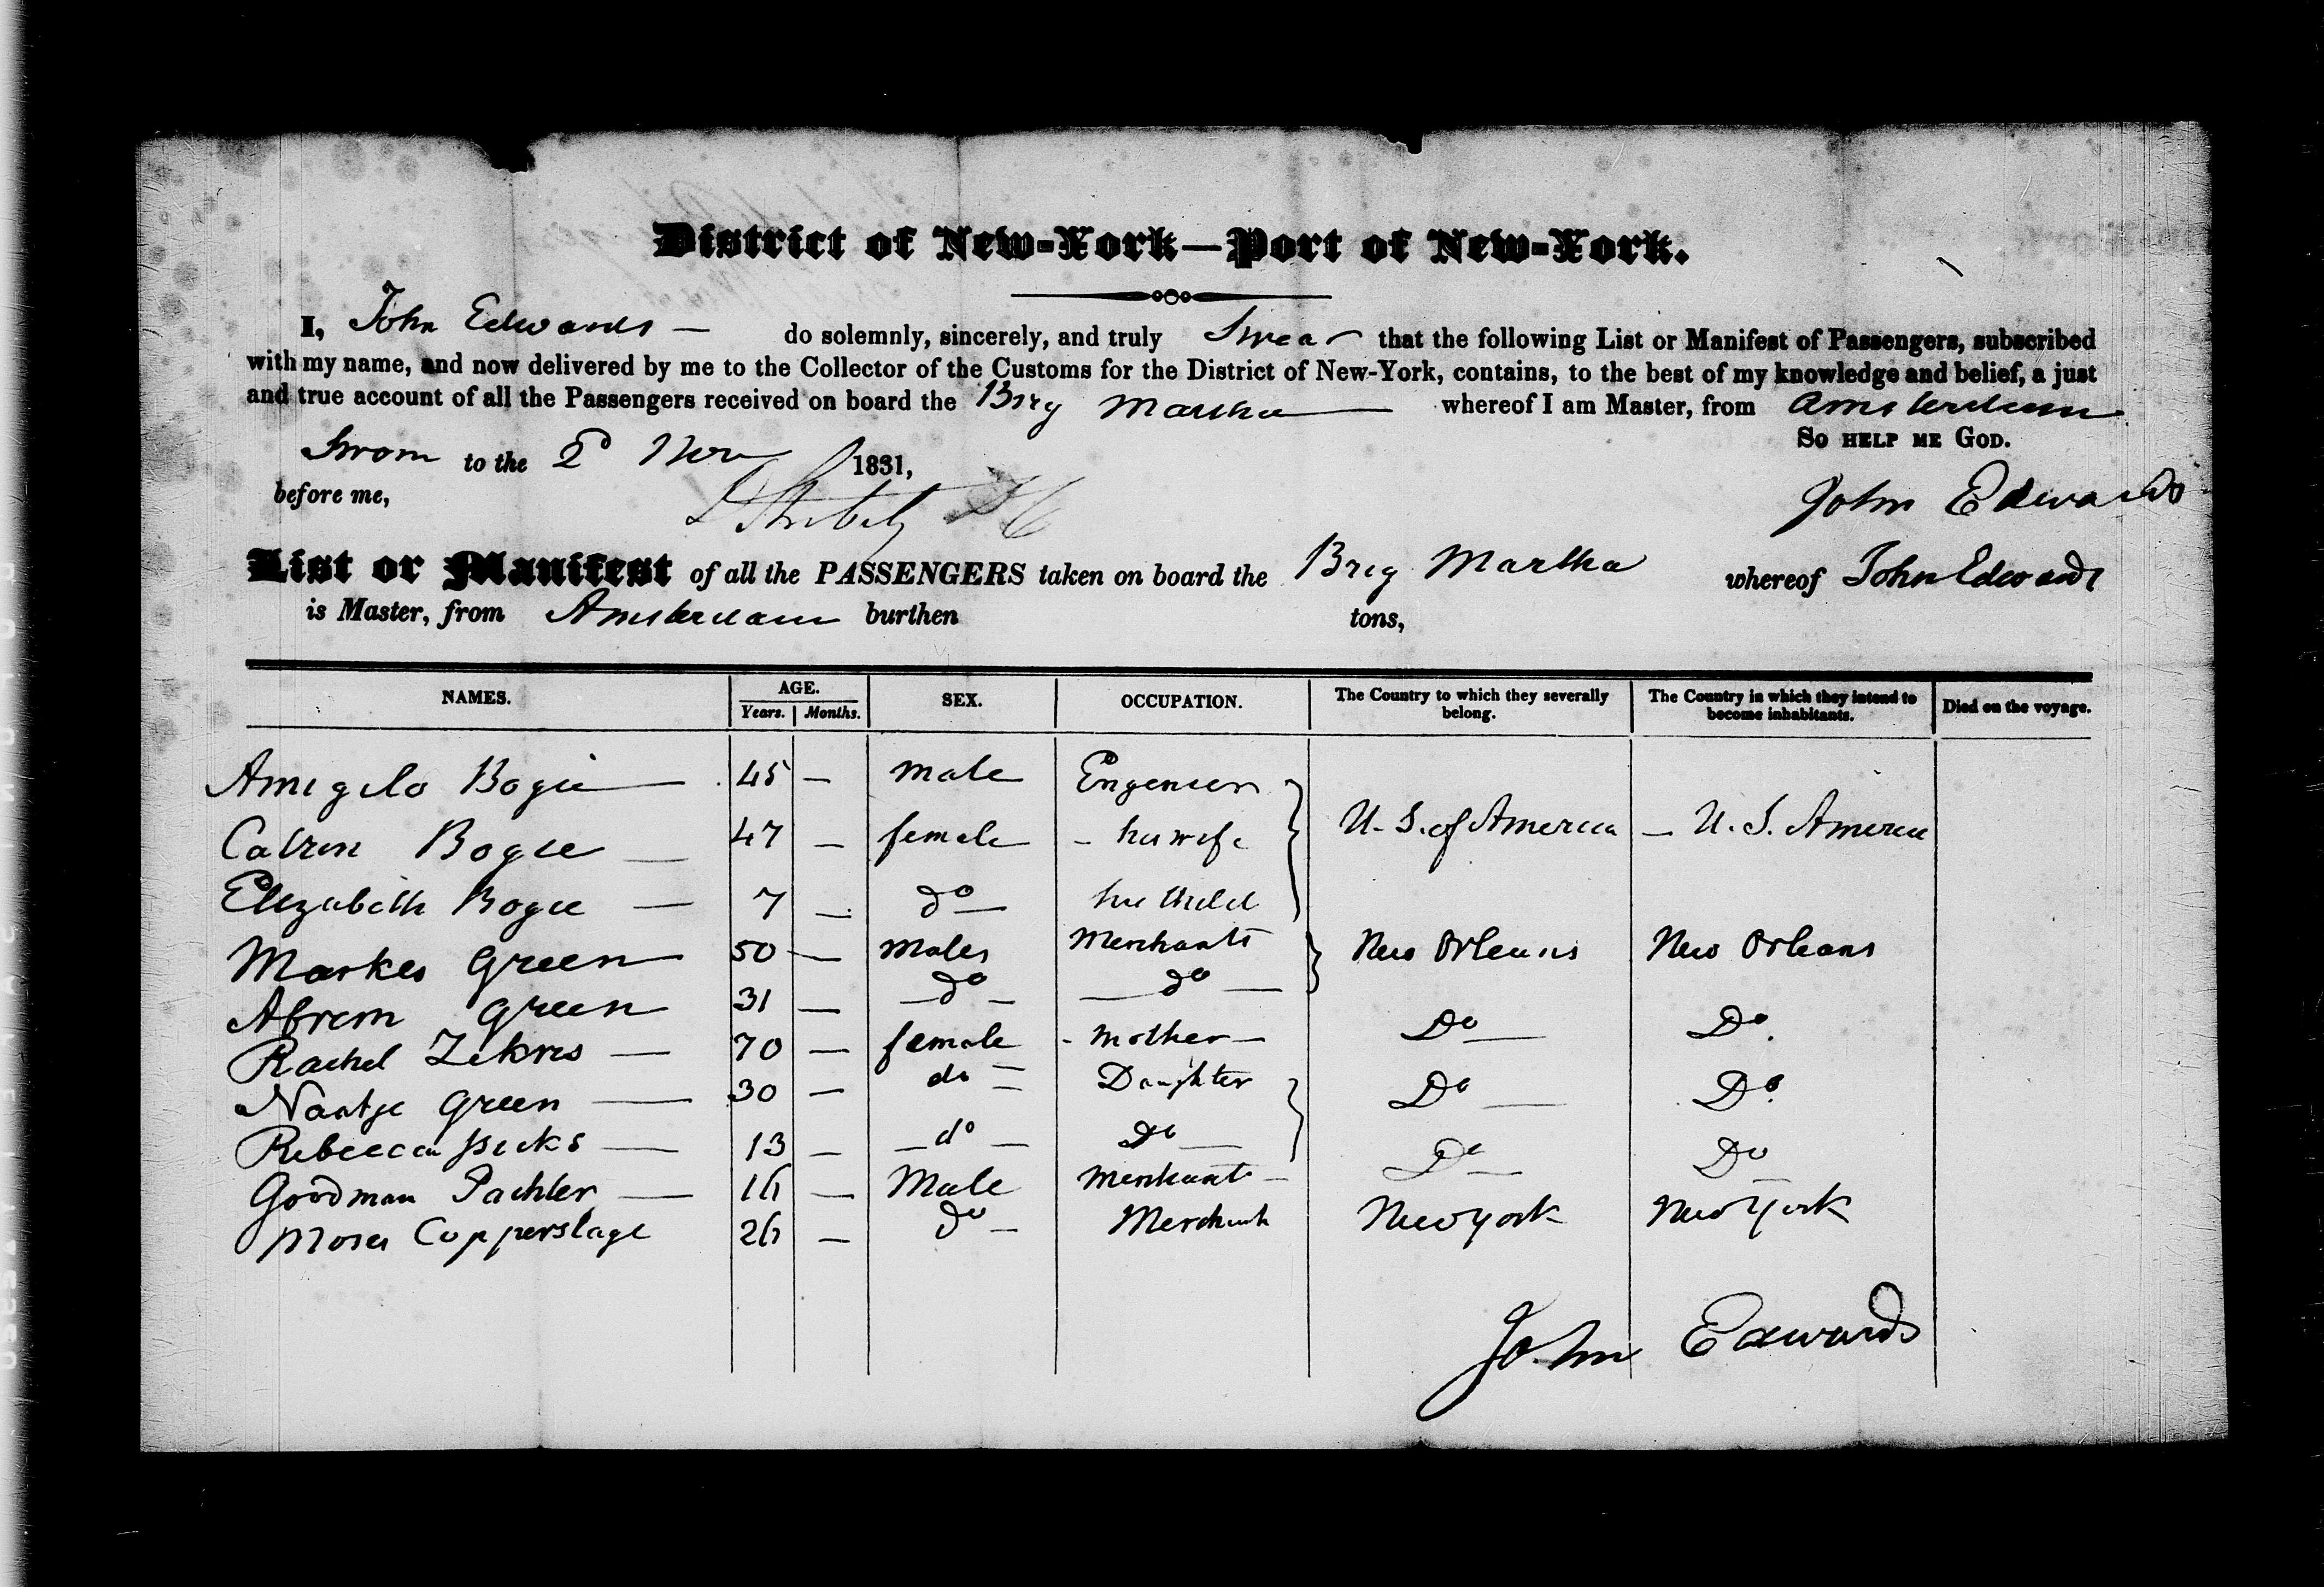 District of New-York—Port of New-York.
I, John Edwards — do solemnly, sincerely, and truly Swear that the following List or Manifest of Passengers, subscribed
with my name, and now delivered by me to the Collector of the Customs for the District of New-York, contains, to the best of my knowledge and belief, a just
and true account of all the Passengers received on board the Brig Martha — whereof I am Master, from Amsterdam
So help me God.
Sworn to the 2d Nov 1831,
before me, John Edwards
List or Manifest of all the PASSENGERS taken on board the Brig Martha whereof John Edwards
is Master, from Amsterdam burthen tons,
NAMES. AGE. Years. Months. SEX. OCCUPATION. The Country to which they severally belong. The Country in which they intend to become inhabitants. Died on the voyage.
Bogie — 45 — male Engeneer
Catren Bogie — 47 — female - his wife U. S. of America — U. S. America
Elizabeth Bogie — 7 — do — his Child
Markes Green — 50 — Males Merchants New Orleans New Orleans
Abrem Green 31 — — do — — do —
Rachel — 70 — female - mother — Do — Do.
Naatje Green — 30 — do — Daughter Do — Do.
Rebecca — 13 — — do — Do — Do — Do —
Goodman Pachter — 16 — Male Merchant —
Moses Copperslage 26 — do — Merchant New York New York
John Edwards